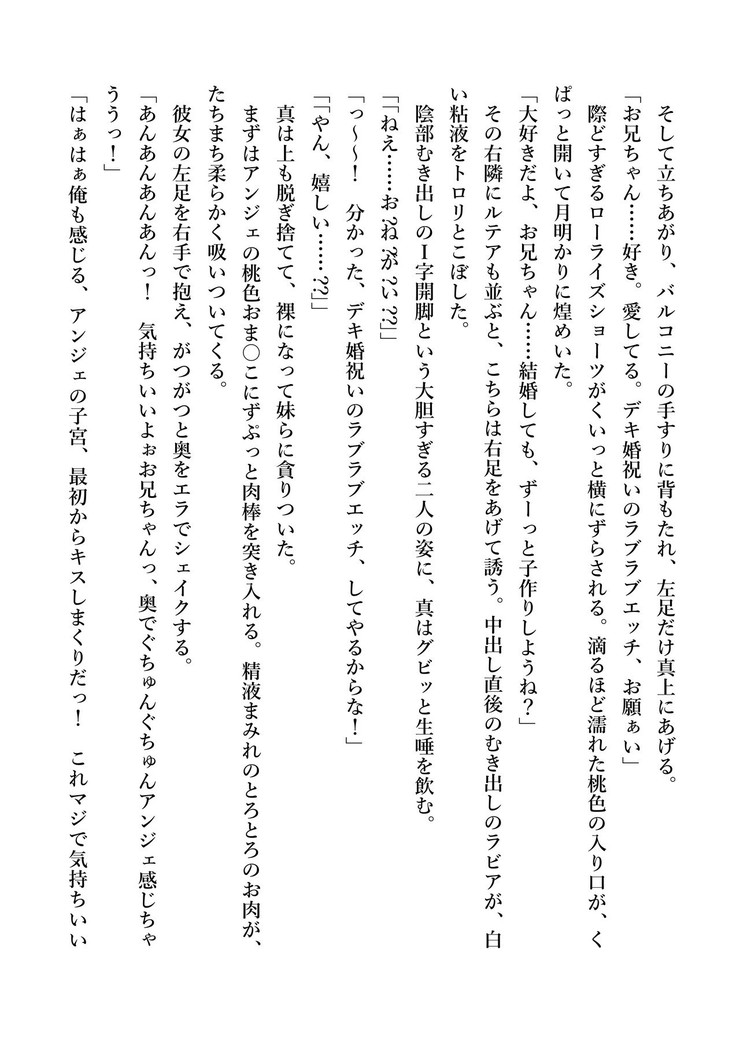 そして立ちあがり、バルコニーの手すりに背もたれ、左足だけ真上にあげる。
「お兄ちゃん……好き。愛してる。デキ婚祝いのラブラブエッチ、お願ぁい」
際どすぎるローライズショーツがくいっと横にずらされる。滴るほど濡れた桃色の入り口が、く
ぱっと開いて月明かりに煌めいた。
「大好きだよ、お兄ちゃん……結婚しても、ずーっと子作りしようね？」
その右隣にルテアも並ぶと、こちらは右足をあげて誘う。中出し直後のむき出しのラビアが、白
い粘液をトロリとこぼした。
陰部むき出しのＩ字開脚という大胆すぎる二人の姿に、真はグビッと生唾を飲む。
「「ねえ……お?ね?が?い??」」
「っ～～！　分かった、デキ婚祝いのラブラブエッチ、してやるからな！」
「「やん、嬉しい……??」」
真は上も脱ぎ捨てて、裸になって妹らに貪りついた。
まずはアンジェの桃色おま〇こにずぷっと肉棒を突き入れる。精液まみれのとろとろのお肉が、
たちまち柔らかく吸いついてくる。
彼女の左足を右手で抱え、がつがつと奥をエラでシェイクする。
「あんあんあんあんっ！　気持ちいいよぉお兄ちゃんっ、奥でぐちゅんぐちゅんアンジェ感じちゃ
ううっ！」
「はぁはぁ俺も感じる、アンジェの子宮、最初からキスしまくりだっ！　これマジで気持ちいい